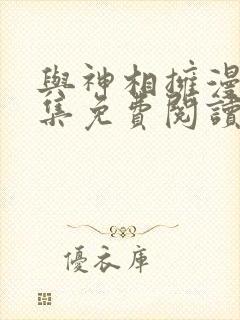 與神相擁漫
集免費閱讀
優衣庫